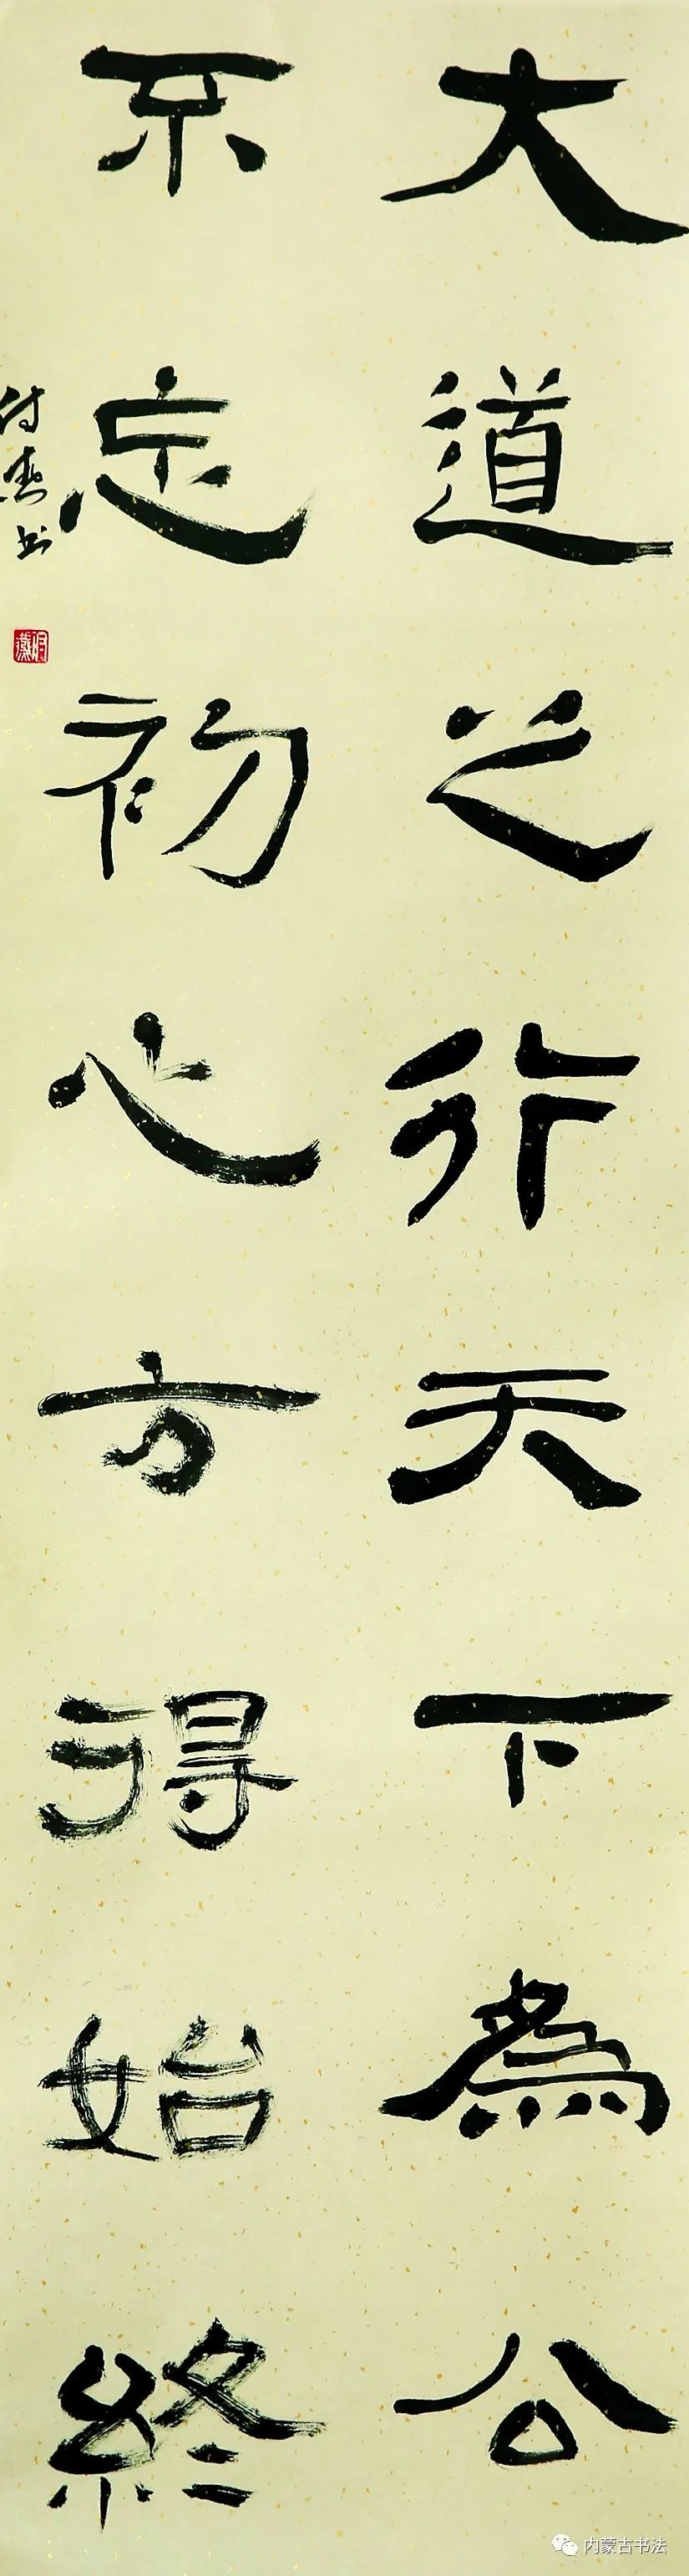 大道之行天下為公
不忘初心方得始終
内蒙古书法